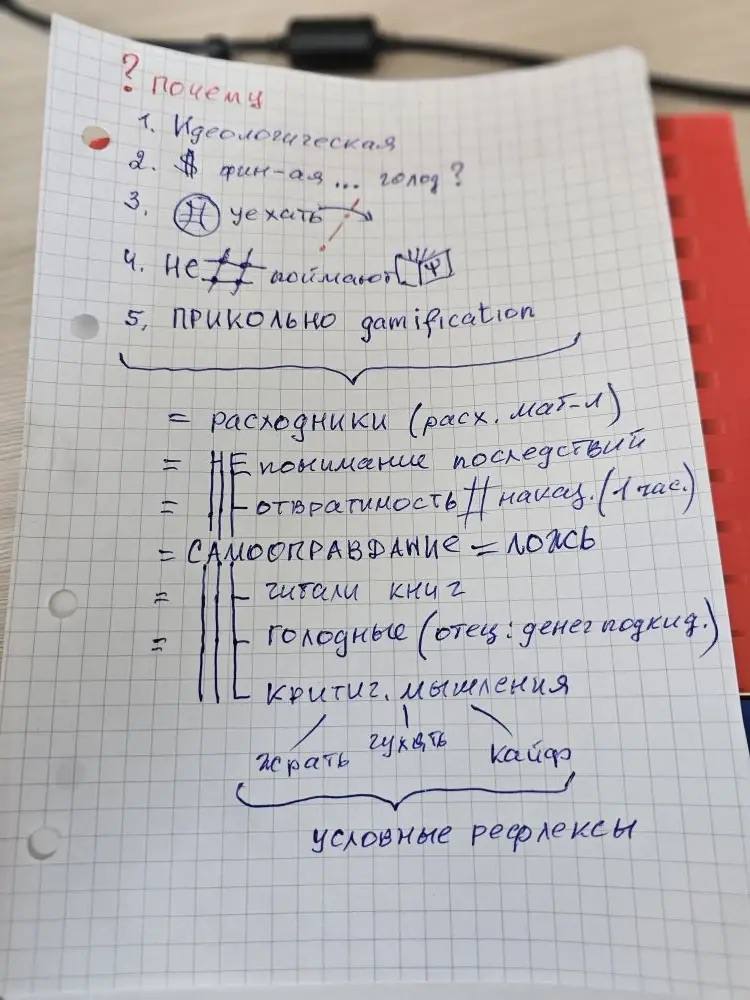 ? Почему
1. Идеологическая
2. $ фин-ая ... голод?
3. уехать
4. НЕ поймают
5, ПРИКОЛЬНО gamification
= расходники (расх. мат-л)
= НЕ понимание последствий
= отвратимость наказ. (1 час.)
= САМООПРАВДАНИЕ = ЛОЖЬ
= читали книг
= голодные (отец: денег подкид.)
критич. мышления
жрать бухать кайф
условные рефлексы